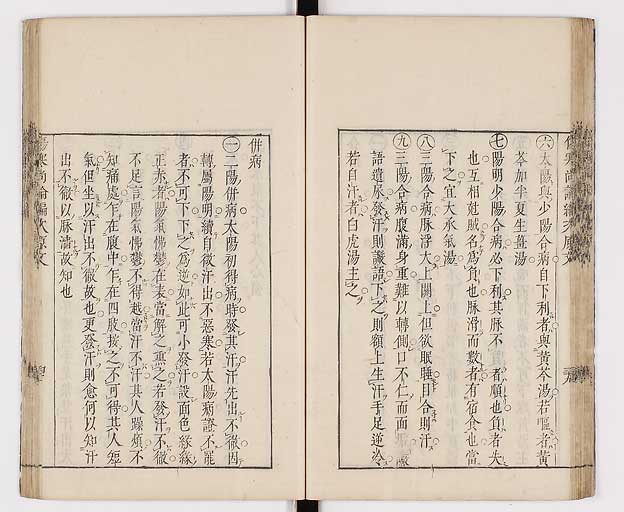 ㊅太陽與少陽合病自下利者與黃芩湯若嘔者黃
芩加半夏生薑湯
㊆陽明少陽合病必下利其脉不　者順也負者失
也互相尅賊名為負也脉滑而數者有宿食也當
下之宜大承氣湯
㊇三陽合病脉浮大上關上但欲眠睡目合則汗
㊈三陽合病腹滿身重難以轉側口不仁而面
語遺尿發汗則讝語下之則額上生汗手足逆冷
若自汗者白虎湯主之
併病
㊀二陽併病太陽初得病時發其汗汗先出不徹因
轉屬陽明續自微汗出不惡寒若太陽病證不罷
者不可下下之為逆如此可小發汗設面色緣緣
正赤者陽氣怫鬱在表當解之熏之若發汗不徹
不足言陽氣怫鬱不得越當汗不汗其人躁煩不
知痛處乍在腹中乍在四肢按之不可得其人短
氣但坐以汗出不徹故也更發汗則愈何以知汗
出不徹以脉濇故知也